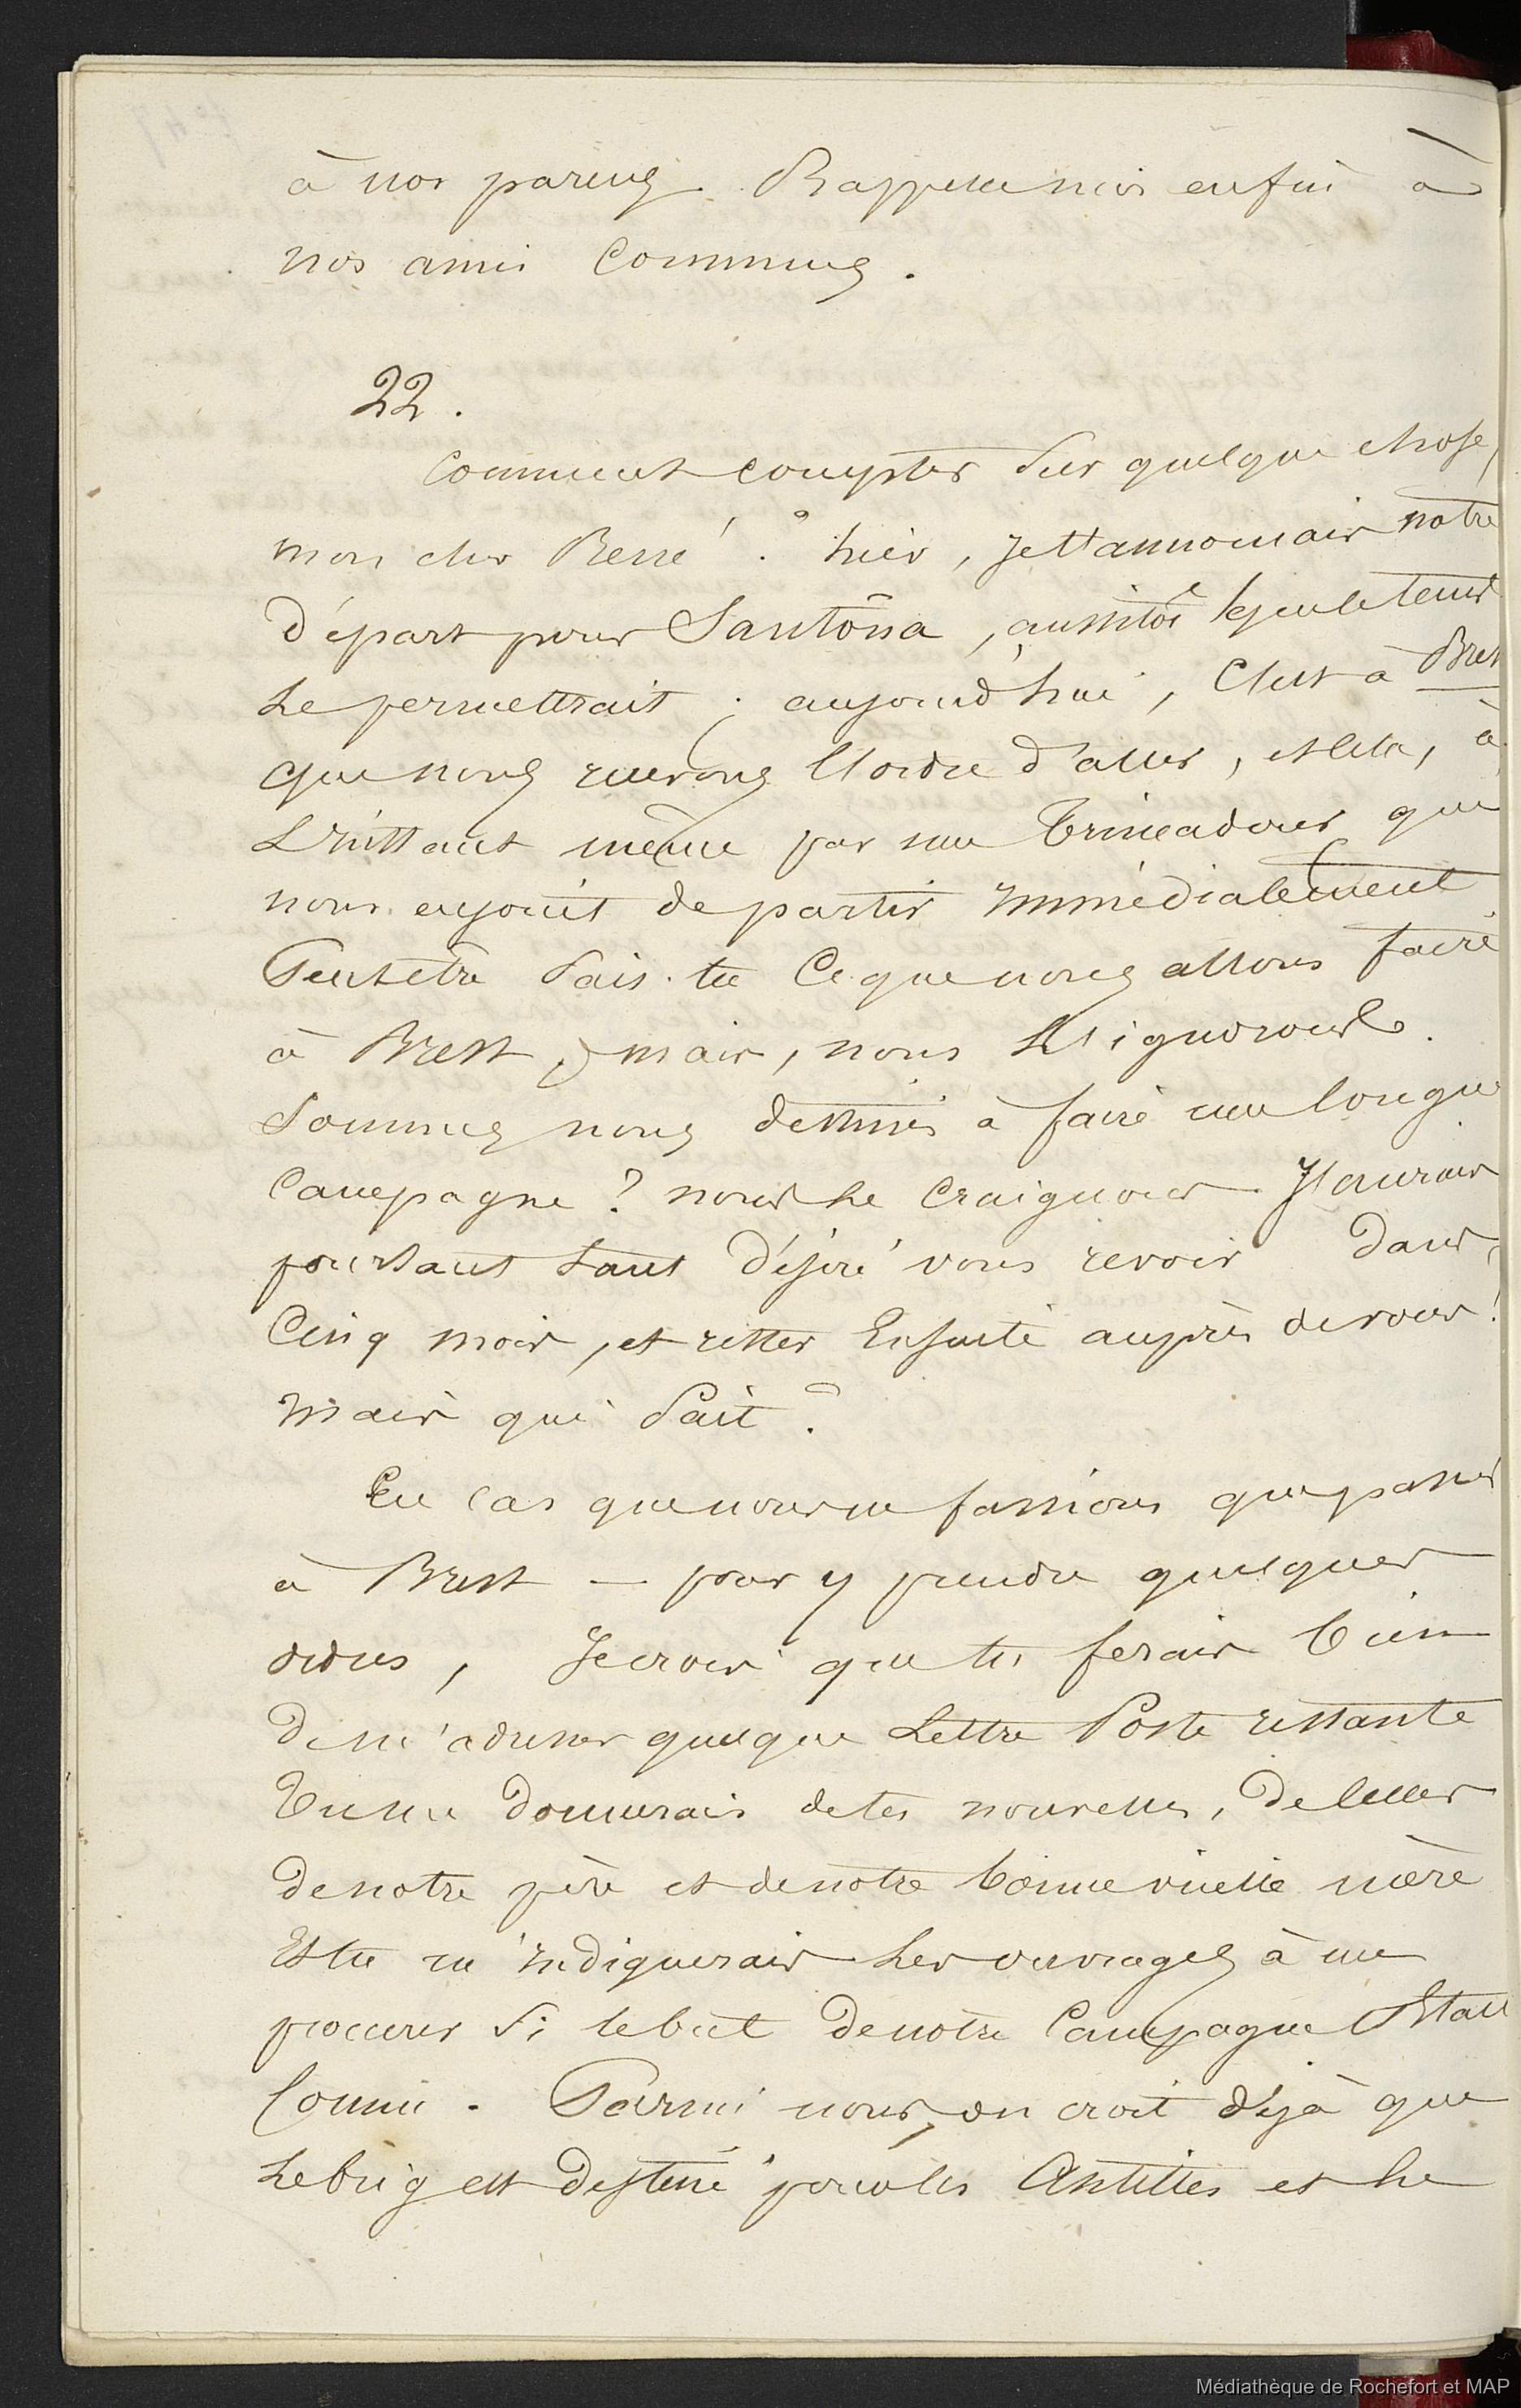 à nos parens. Rappelle moi enfin à
nos amis communs.
22.
Comment compter sur quelque chose,
mon cher René ? hier, je t'annonçais notre
départ pour Santôna, aussitôt que le tems
le permettrait ; aujourd'hui, c'est à Brest
que nous recevons l'ordre d'aller, et cela, à
l'instant même par une trincadour que
nous enjoint de partir immédiatement
Peutetre sais-tu ce que nous allons faire
à Brest, mais, nous l'ignorons.
Sommes nous destinés à faire une longue
Campagne ? nous le craignons. J'aurais
pourtant tant désiré vous revoir dans
cinq mois, et rester ensuite auprès de vous !
mais qui sait ?
En cas que nous ne fassions que passer
à Brest — pour y prendre quelques
ordres, je crois que tu ferais bien
de m'adresser quelque Lettre Poste restante
Tu me donnerais de tes nouvelles, de celles
de notre père et de notre bonne vieille mère
Et tu m'indiquerais les ouvrages à me
procurer si le but de notre Campagne était
connu. Parmi nous, on croit déjà que
le brig est destiné pour les Antilles et le
Médiathèque de Rochefort et MAP